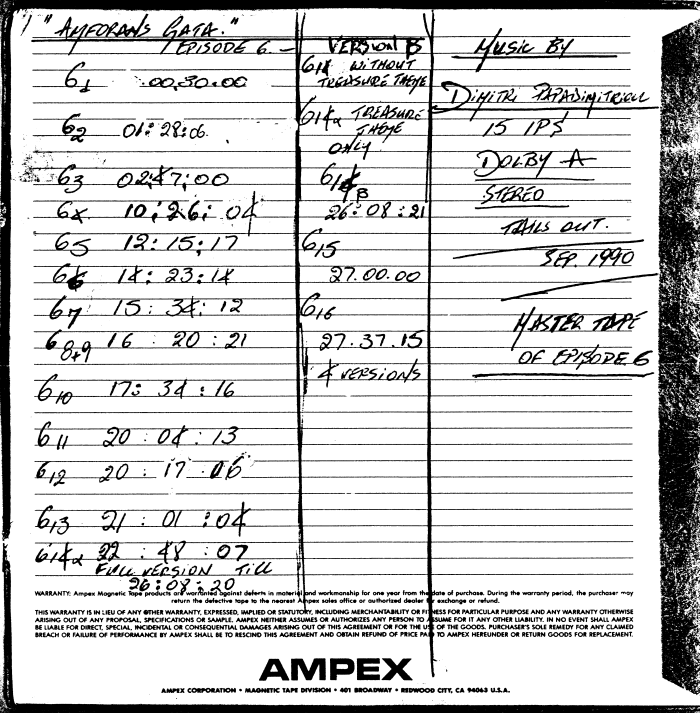 "AMFORANS GATA."
EPISODE 6. —
6 1 00.30.00
6 2 01:28:06.
6 3 02:47:00
6 4 10:26:04
6 5 12:15:17
6 6 14:23:14
6 7 15:34:12
6 8+9 16 20:21
6 10 17:34:16
6 11 20:04:13
6 12 20:17.06
6 13 21:01:04
6 14α 22:48:07
FULL VERSION TILL
26:08:20
VERSION B
614 WITHOUT
TREASURE THEME
614α TREASURE
THEME
ONLY
614β
26:08:21
615
27.00.00
616
27.37.15
4 VERSIONS
MUSIC BY
DIMITRI PAPADIMITRIOU
15 IPS
DOLBY A
STEREO
TAILS OUT.
SEP. 1990
MASTER TAPE
OF EPISODE 6
WARRANTY: Ampex Magnetic Tape products are warranted against defects in material and workmanship for one year from the date of purchase. During the warranty period, the purchaser may
return the defective tape to the nearest Ampex sales office or authorized dealer for exchange or refund.
THIS WARRANTY IS IN LIEU OF ANY OTHER WARRANTY, EXPRESSED, IMPLIED OR STATUTORY, INCLUDING MERCHANTABILITY OR FITNESS FOR PARTICULAR PURPOSE AND ANY WARRANTY OTHERWISE
ARISING OUT OF ANY PROPOSAL, SPECIFICATIONS OR SAMPLE. AMPEX NEITHER ASSUMES OR AUTHORIZES ANY PERSON TO ASSUME FOR IT ANY OTHER LIABILITY. IN NO EVENT SHALL AMPEX
BE LIABLE FOR DIRECT, SPECIAL, INCIDENTAL OR CONSEQUENTIAL DAMAGES ARISING OUT OF THIS AGREEMENT OR FOR THE USE OF THE GOODS. PURCHASER'S SOLE REMEDY FOR ANY CLAIMED
BREACH OR FAILURE OF PERFORMANCE BY AMPEX SHALL BE TO RESCIND THIS AGREEMENT AND OBTAIN REFUND OF PRICE PAID TO AMPEX HEREUNDER OR RETURN GOODS FOR REPLACEMENT.
AMPEX
AMPEX CORPORATION • MAGNETIC TAPE DIVISION • 401 BROADWAY • REDWOOD CITY, CA 94063 U.S.A.